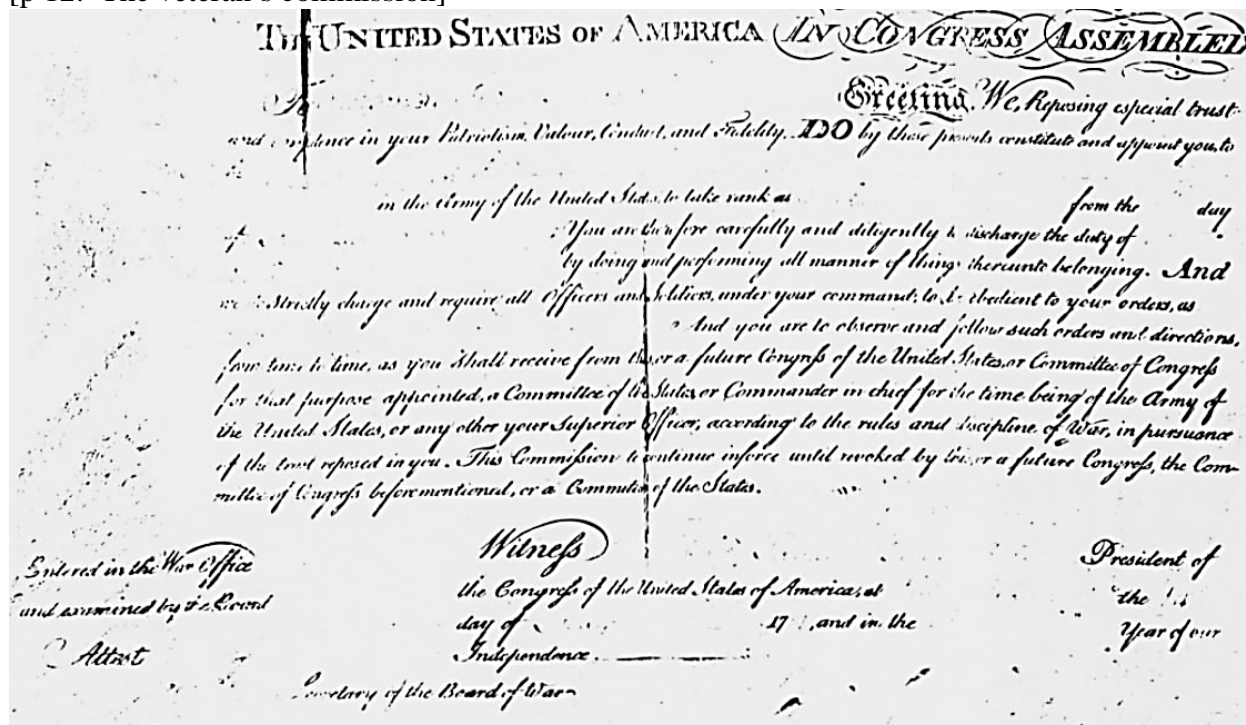 [p 12: The veteran's commission]
The UNITED STATES OF AMERICA IN CONGRESS ASSEMBLED
To Greeting. We, Reposing especial trust
and confidence in your Patriotism, Valour, Conduct, and Fidelity, DO by these presents constitute and appoint you, to
in the Army of the United States, to take rank as from the day
of You are therefore carefully and diligently to discharge the duty of
by doing and performing all manner of things thereunto belonging. And
we Strictly charge and require all Officers and Soldiers, under your command, to be obedient to your orders, as
And you are to observe and follow such orders and directions,
from time to time, as you Shall receive from this, or a future Congreſs of the United States, or Committee of Congreſs
for that purpose appointed, a Committee of the States, or Commander in chief for the time being of the Army of
the United States, or any other your Superior Officer, according to the rules and discipline of War, in pursuance
of the trust reposed in you. This Commiſsion to continue in force until revoked by this, or a future Congreſs, the Com-
mittee of Congreſs beforementioned, or a Committee of the States.
Entered in the War Office
and examined by the Board
Attest
Secretary of the Board of War
Witneſs President of
the Congreſs of the United States of America, at the
day of 17 , and in the Year of our
Independence